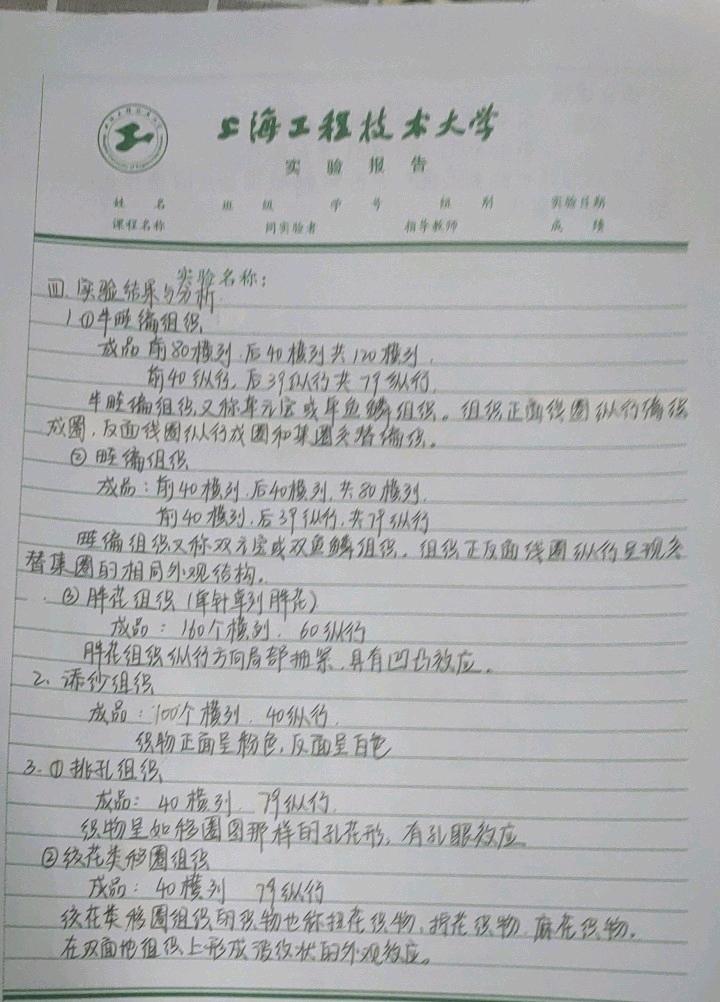 上海工程技术大学
实验报告
姓名 班级 学号 组别 实验日期
课程名称 同实验者 指导教师 成绩
实验名称：
四.实验结果与分析
1.①半畦编组织
成品 前80横列.后40横列共120横列.
前40纵行,后39纵行共79纵行.
半畦编组织又称单元宝或单鱼鳞组织。组织正面线圈纵行编织
成圈,反面线圈纵行成圈和集圈交替编织。
②畦编组织
成品：前40横列.后40横列.共80横列.
前40横列,后39纵行,共79纵行
畦编组织又称双元宝或双鱼鳞组织。组织正反面线圈纵行呈现交
替集圈的相同外观结构。
③胖花组织(单针单列胖花)
成品：160个横列. 60纵行
胖花组织纵行方向局部抽紧.具有凹凸效应。
2.添纱组织
成品：100个横列. 40纵行.
织物正面呈粉色,反面呈白色
3.①挑孔组织
成品：40横列. 79纵行.
织物呈如移圈图那样的孔花形,有孔眼效应
②绞花类移圈组织
成品：40横列 79纵行
绞花类移圈组织的织物也称扭花织物.拧花织物.麻花织物。
在双面地组织上形成 纹状的外观效应。